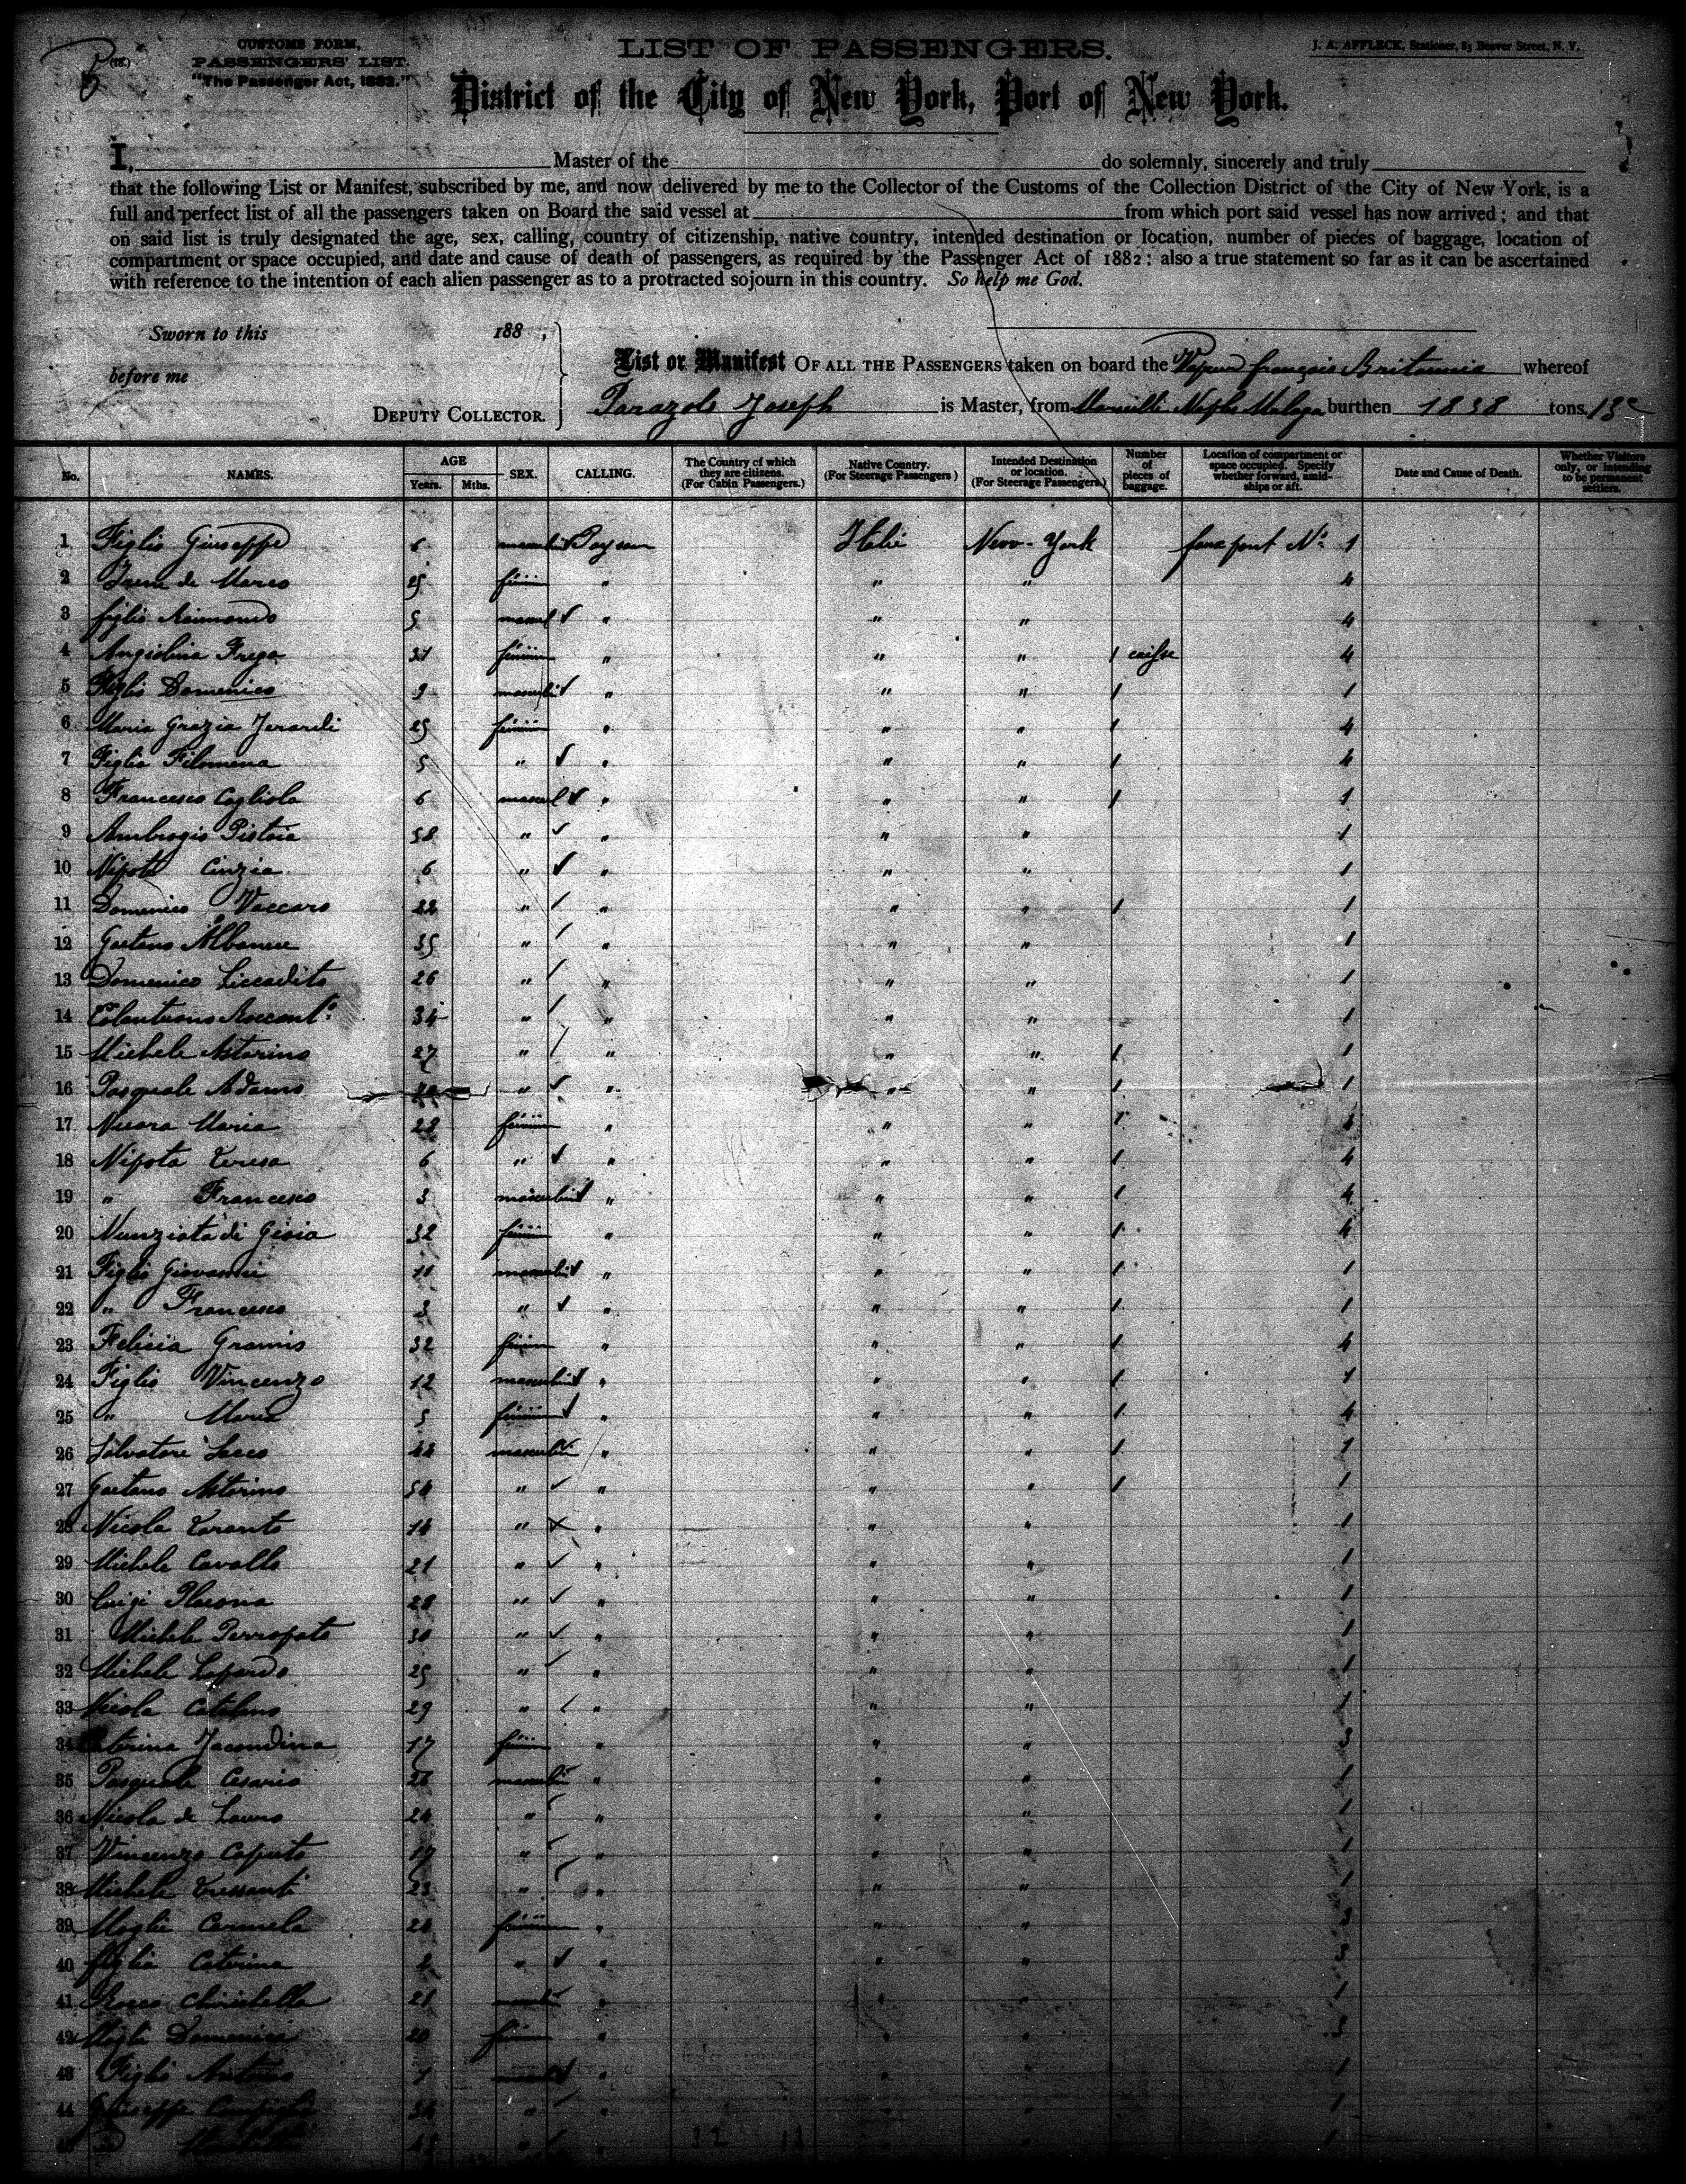 CUSTOMS FORM,
PASSENGERS' LIST.
"The Passenger Act, 1882."
LIST OF PASSENGERS.
J. A. AFFLECK, Stationer, 83 Beaver Street, N. Y.
District of the City of New York, Port of New York.
I, Master of the do solemnly, sincerely and truly
that the following List or Manifest, subscribed by me, and now delivered by me to the Collector of the Customs of the Collection District of the City of New York, is a
full and perfect list of all the passengers taken on Board the said vessel at from which port said vessel has now arrived; and that
on said list is truly designated the age, sex, calling, country of citizenship, native country, intended destination or location, number of pieces of baggage, location of
compartment or space occupied, and date and cause of death of passengers, as required by the Passenger Act of 1882: also a true statement so far as it can be ascertained
with reference to the intention of each alien passenger as to a protracted sojourn in this country. So help me God.
Sworn to this 188 ,
before me
DEPUTY COLLECTOR.
List or Manifest OF ALL THE PASSENGERS taken on board the Vapeur français Britannia whereof
Joseph is Master, from Marseille Naples Malaga burthen 1838 tons.
No. NAMES. AGE Years. Mths. SEX. CALLING. The Country of which they are citizens. (For Cabin Passengers.) Native Country. (For Steerage Passengers) Intended Destination or location. (For Steerage Passengers.) Number of pieces of baggage. Location of compartment or space occupied. Specify whether forward, amidships or aft. Date and Cause of Death. Whether Visitors only, or intending to be permanent settlers.
1 Figlio Giuseppe 6 masculin Paysan Italie New-York faux pont No. 1
2 de Marco 25 fémin " " " 4
3 figlio Raimondo 5 mascul " " " 4
4 Angiolina Frega 31 féminin " " " 1 caisse 4
5 Figlio Domenico 9 masculin " " " 1 1
6 Maria Grazia 25 fémin " " " 1 4
7 Figlia Filomena 5 " " " " 1 4
8 Francesco Cagliola 6 mascul " " " 1 1
9 Ambrogio Pistoia 58 " " " " 1
10 Nipote Cinzia 6 " " " " 1
11 Domenico Vaccaro 22 " " " " 1 1
12 Gaetano Albanese 35 " " " " 1
13 Domenico Liccadito 26 " " " " 1
14 34 " " " " 1
15 Michele Astorino 27 " " " " 1 1
16 Pasquale Adamo " " " " 1 1
17 Maria 28 fémin " " " 1 4
18 Nipota Teresa 6 " " " " 1 4
19 " Francesco 3 masculin " " " 1 4
20 Nunziata di Gioia 32 fémin " " " 1 4
21 Figlio Giovanni 11 masculin " " " 1 1
22 " Francesco 3 " " " " 1 1
23 Felicia Gramis 32 fémin " " " 1 4
24 Figlio Vincenzo 12 masculin " " " 1 1
25 " Maria 5 féminin " " " 1 4
26 Salvatore Sacco 44 masculin " " " 1 1
27 Gaetano Astorino 54 " " " " 1 1
28 Nicola Taranto 14 " " " " 1
29 Michele Cavallo 21 " " " " 1
30 Luigi 28 " " " 1
31 Michele Perropato 30 " " " " 1
32 Michele Lopardo 25 " " " " 1
33 Nicola Catalano 29 " " " " 1
34 Caterina Jacondina 17 fémin " " " 3
35 Pasquale Cesario 26 masculin " " " 1
36 Nicola de Lauro 24 " " " " 1
37 Vincenzo Caputo 17 " " " " 1
38 Michele Tressanti 23 " " " " 1
39 Moglie Carmela 24 féminin " " " 3
40 figlia Caterina " " " " 3
41 Rocco Chirichella 21 masculin " " " 1
42 Moglie Domenica 20 fémin " " " 3
43 Figlio Antonio mascul " " " 1
44 Giuseppe " " " " 1
45